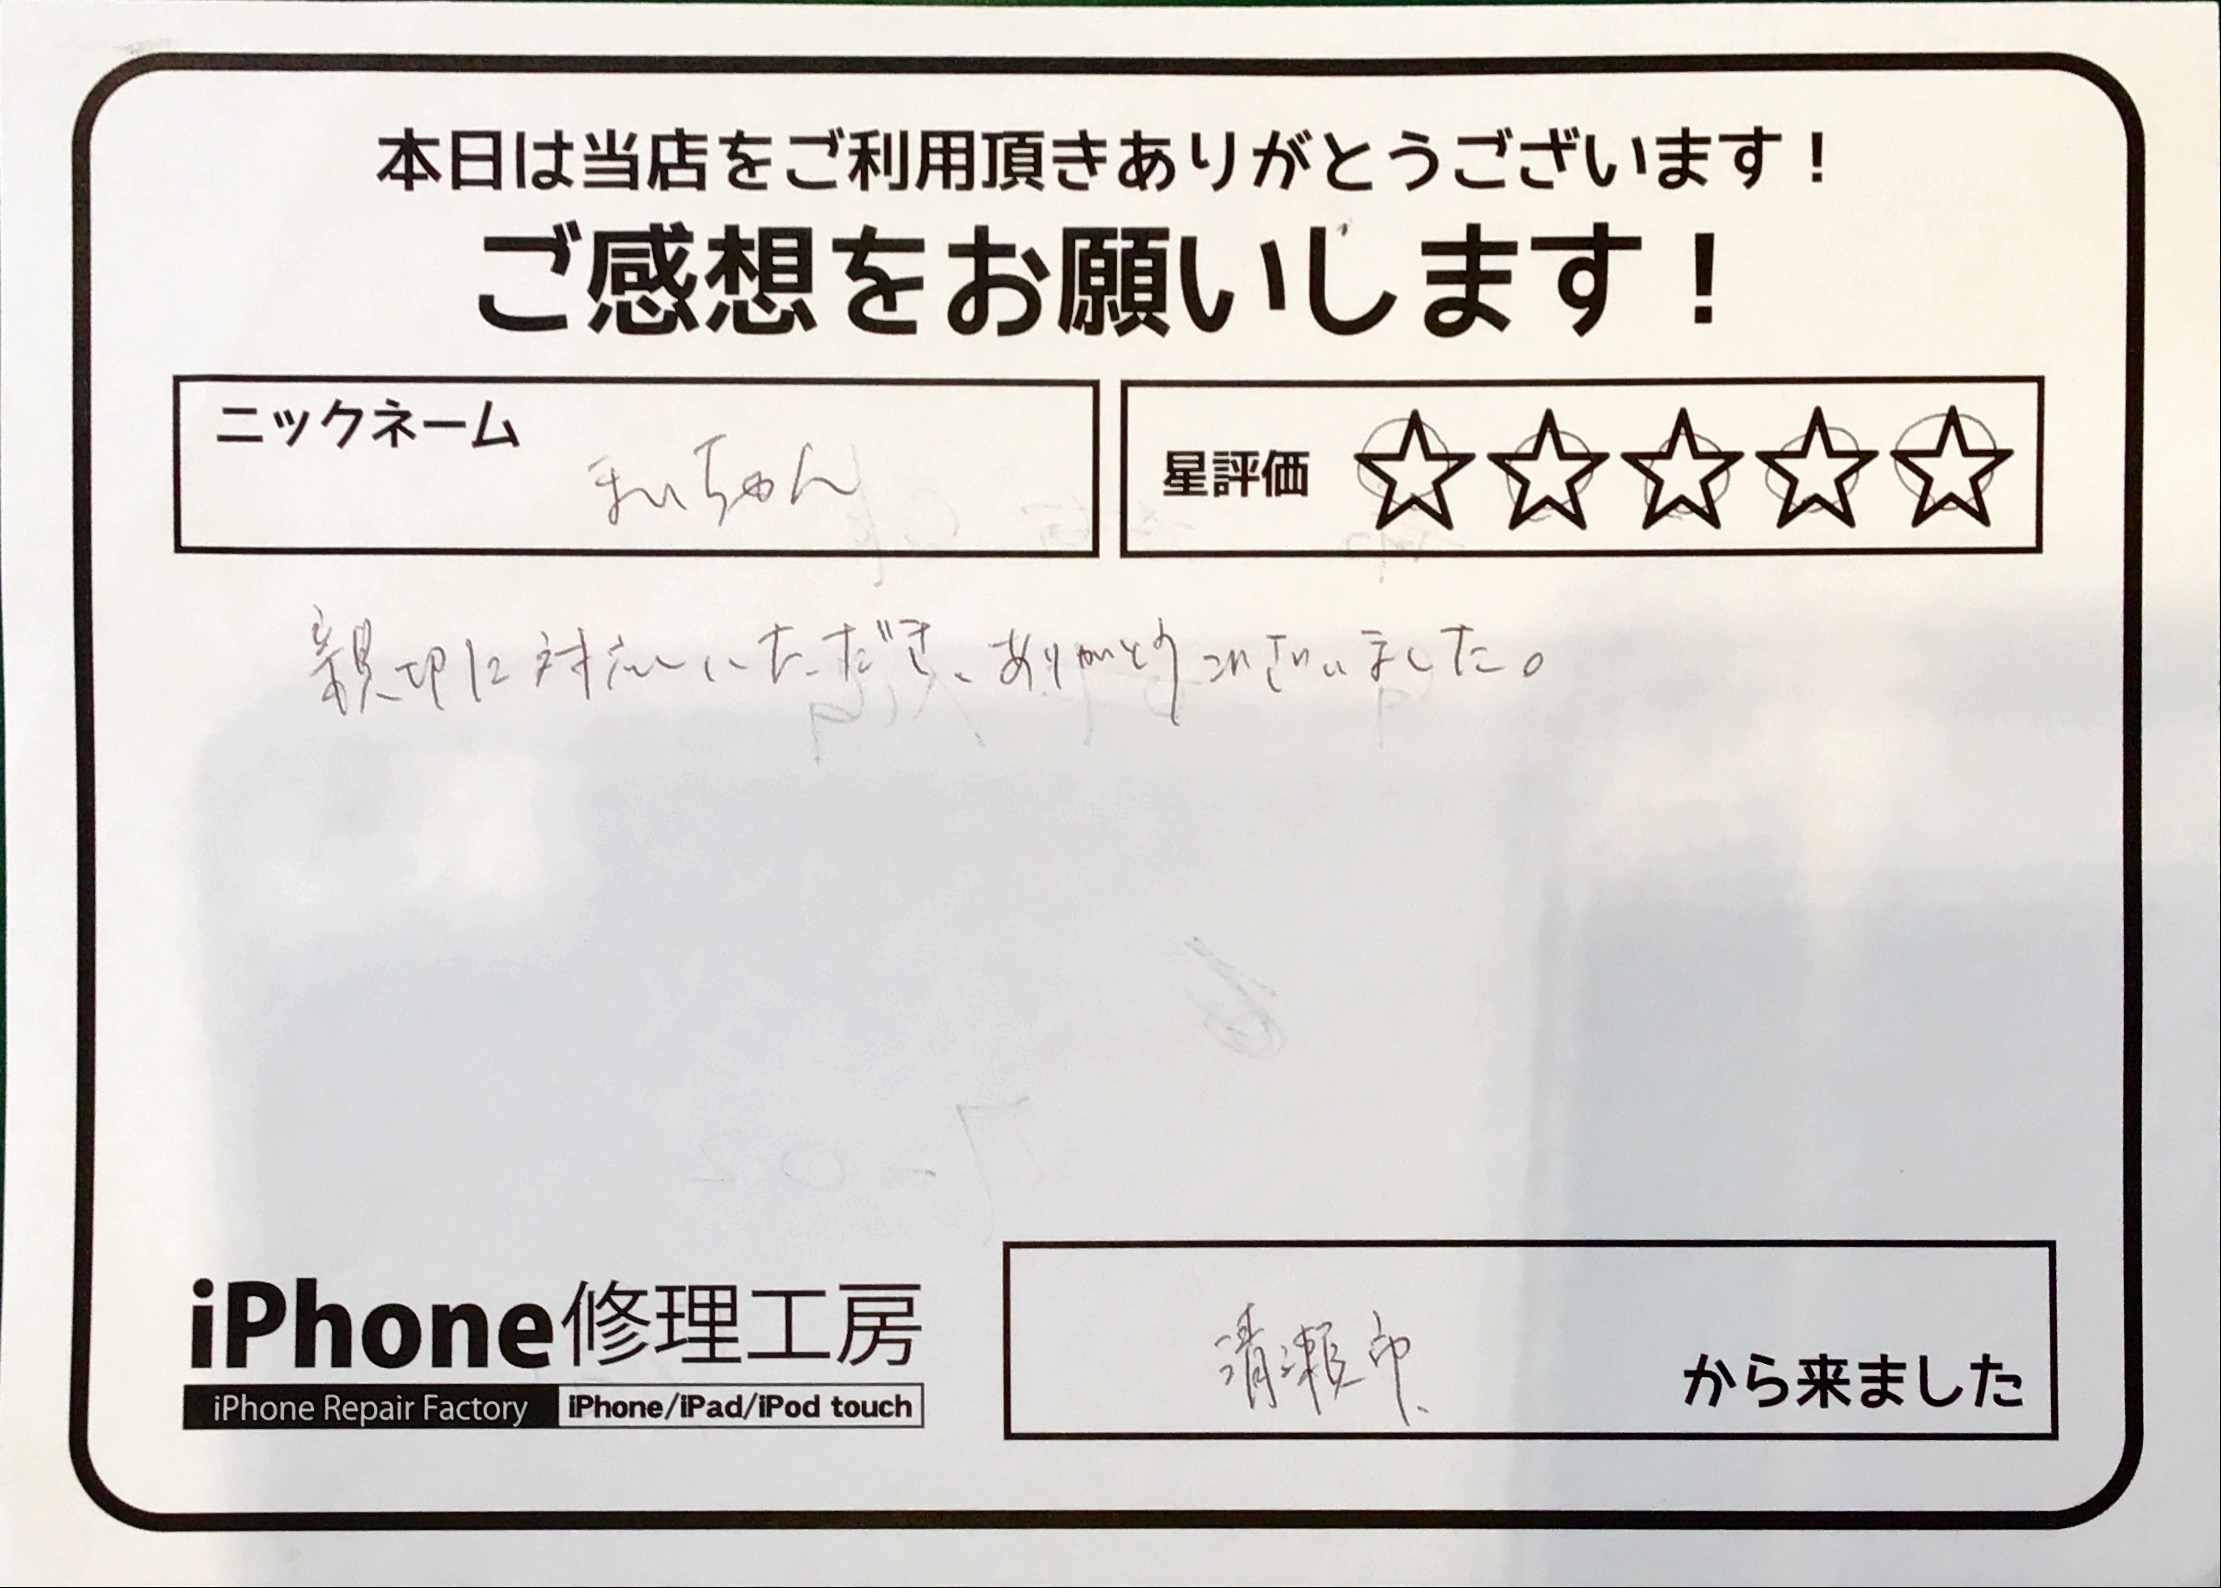 本日は当店をご利用頂きありがとうございます！
ご感想をお願いします！
ニックネーム
まいちゃん
星評価 ☆☆☆☆☆
親切に対応いただき、ありがとうございました。
iPhone修理工房
iPhone Repair Factory iPhone/iPad/iPod touch
清瀬市
から来ました